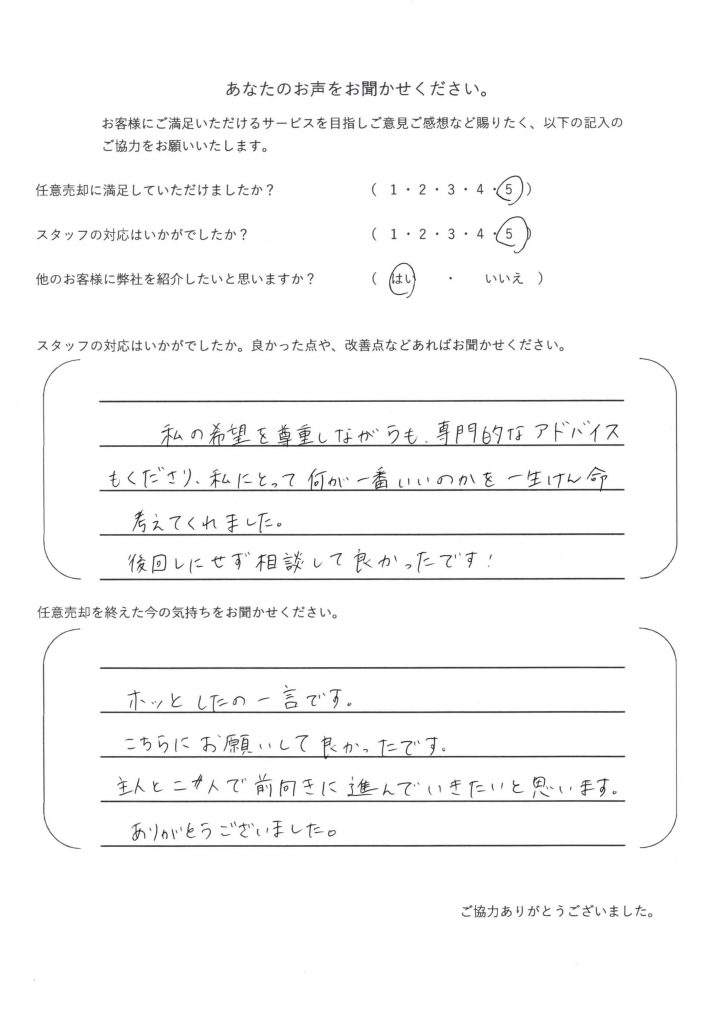 あなたのお声をお聞かせください。
お客様にご満足いただけるサービスを目指しご意見ご感想など賜りたく、以下の記入の
ご協力をお願いいたします。
任意売却に満足していただけましたか？ （ 1・2・3・4・5 ）
スタッフの対応はいかがでしたか？ （ 1・2・3・4・5 ）
他のお客様に弊社を紹介したいと思いますか？ （ はい ・ いいえ ）
スタッフの対応はいかがでしたか。良かった点や、改善点などあればお聞かせください。
私の希望を尊重しながらも、専門的なアドバイス
もくださり、私にとって何が一番いいのかを一生けん命
考えてくれました。
後回しにせず相談して良かったです！
任意売却を終えた今の気持ちをお聞かせください。
ホッとしたの一言です。
こちらにお願いして良かったです。
主人と二人で前向きに進んでいきたいと思います。
ありがとうございました。
ご協力ありがとうございました。